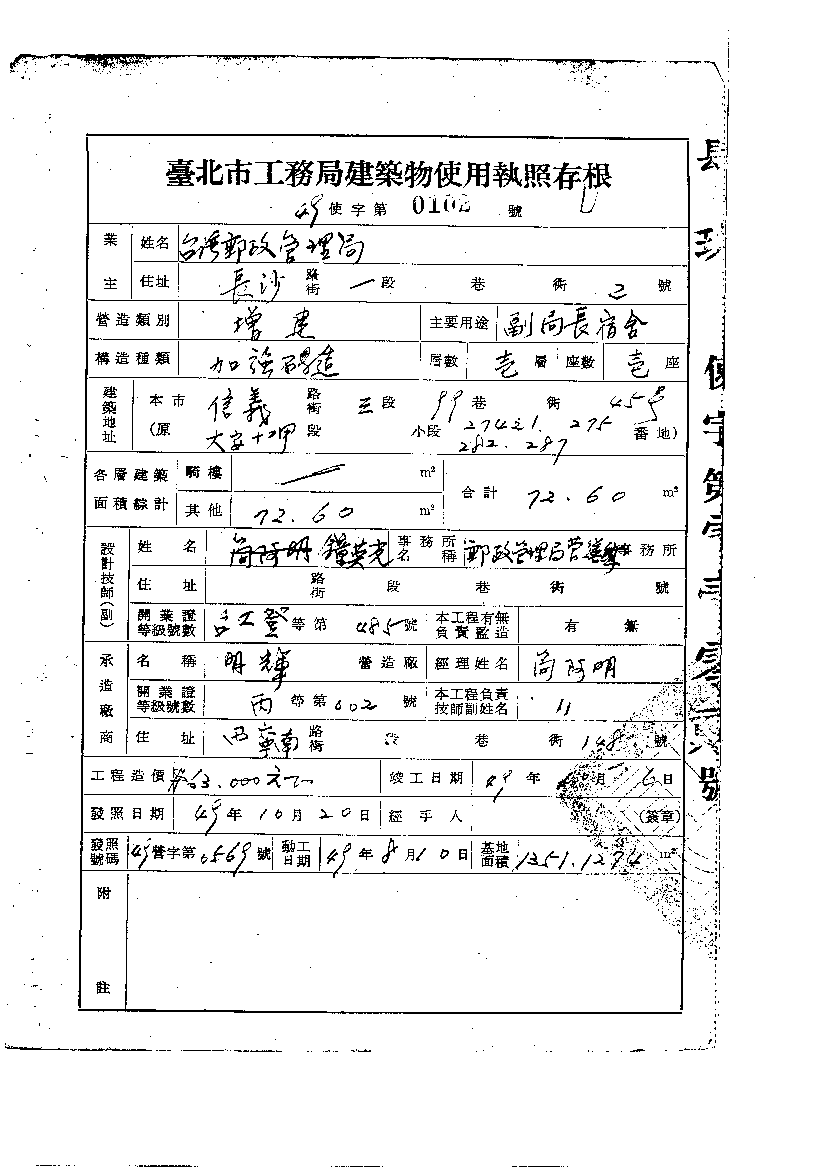 臺北市工務局建築物使用執照存根
49使字第 0102 號
業主 姓名 台灣郵政管理局
住址 長沙 路街 一段 巷 街 2 號
營造類別 增建 主要用途 副局長宿舍
構造種類 加強磚造 層數 壱層 座數 壱座
建築地址 本市 信義 路街 三段 99巷 街 45号
(原 大字十二甲 段 小段 274-21. 275 282. 287 番地)
各層建築面積綜計 騎樓 — m² 合計 72.60 m²
其他 72.60 m²
設計技師(副) 姓名 鐘英光 事務所名稱 郵政管理局營造 事務所
住址 路街 段 巷 街 號
開業證等級號數 台工登 等第 485號 本工程有無負責監造 有 無
承造廠商 名稱 明輝 營造廠 經理姓名 簡阿明
開業證等級號數 丙 等第 002 號 本工程負責技師副姓名 〃
住址 西寧南 路街 段 巷 街 148 號
工程造價 63.000元 竣工日期 49年 10月 6日
發照日期 49年10月20日 經手人 (簽章)
發照號碼 49營字第0569號 動工日期 49年8月10日 基地面積 1351.1274 m²
附註